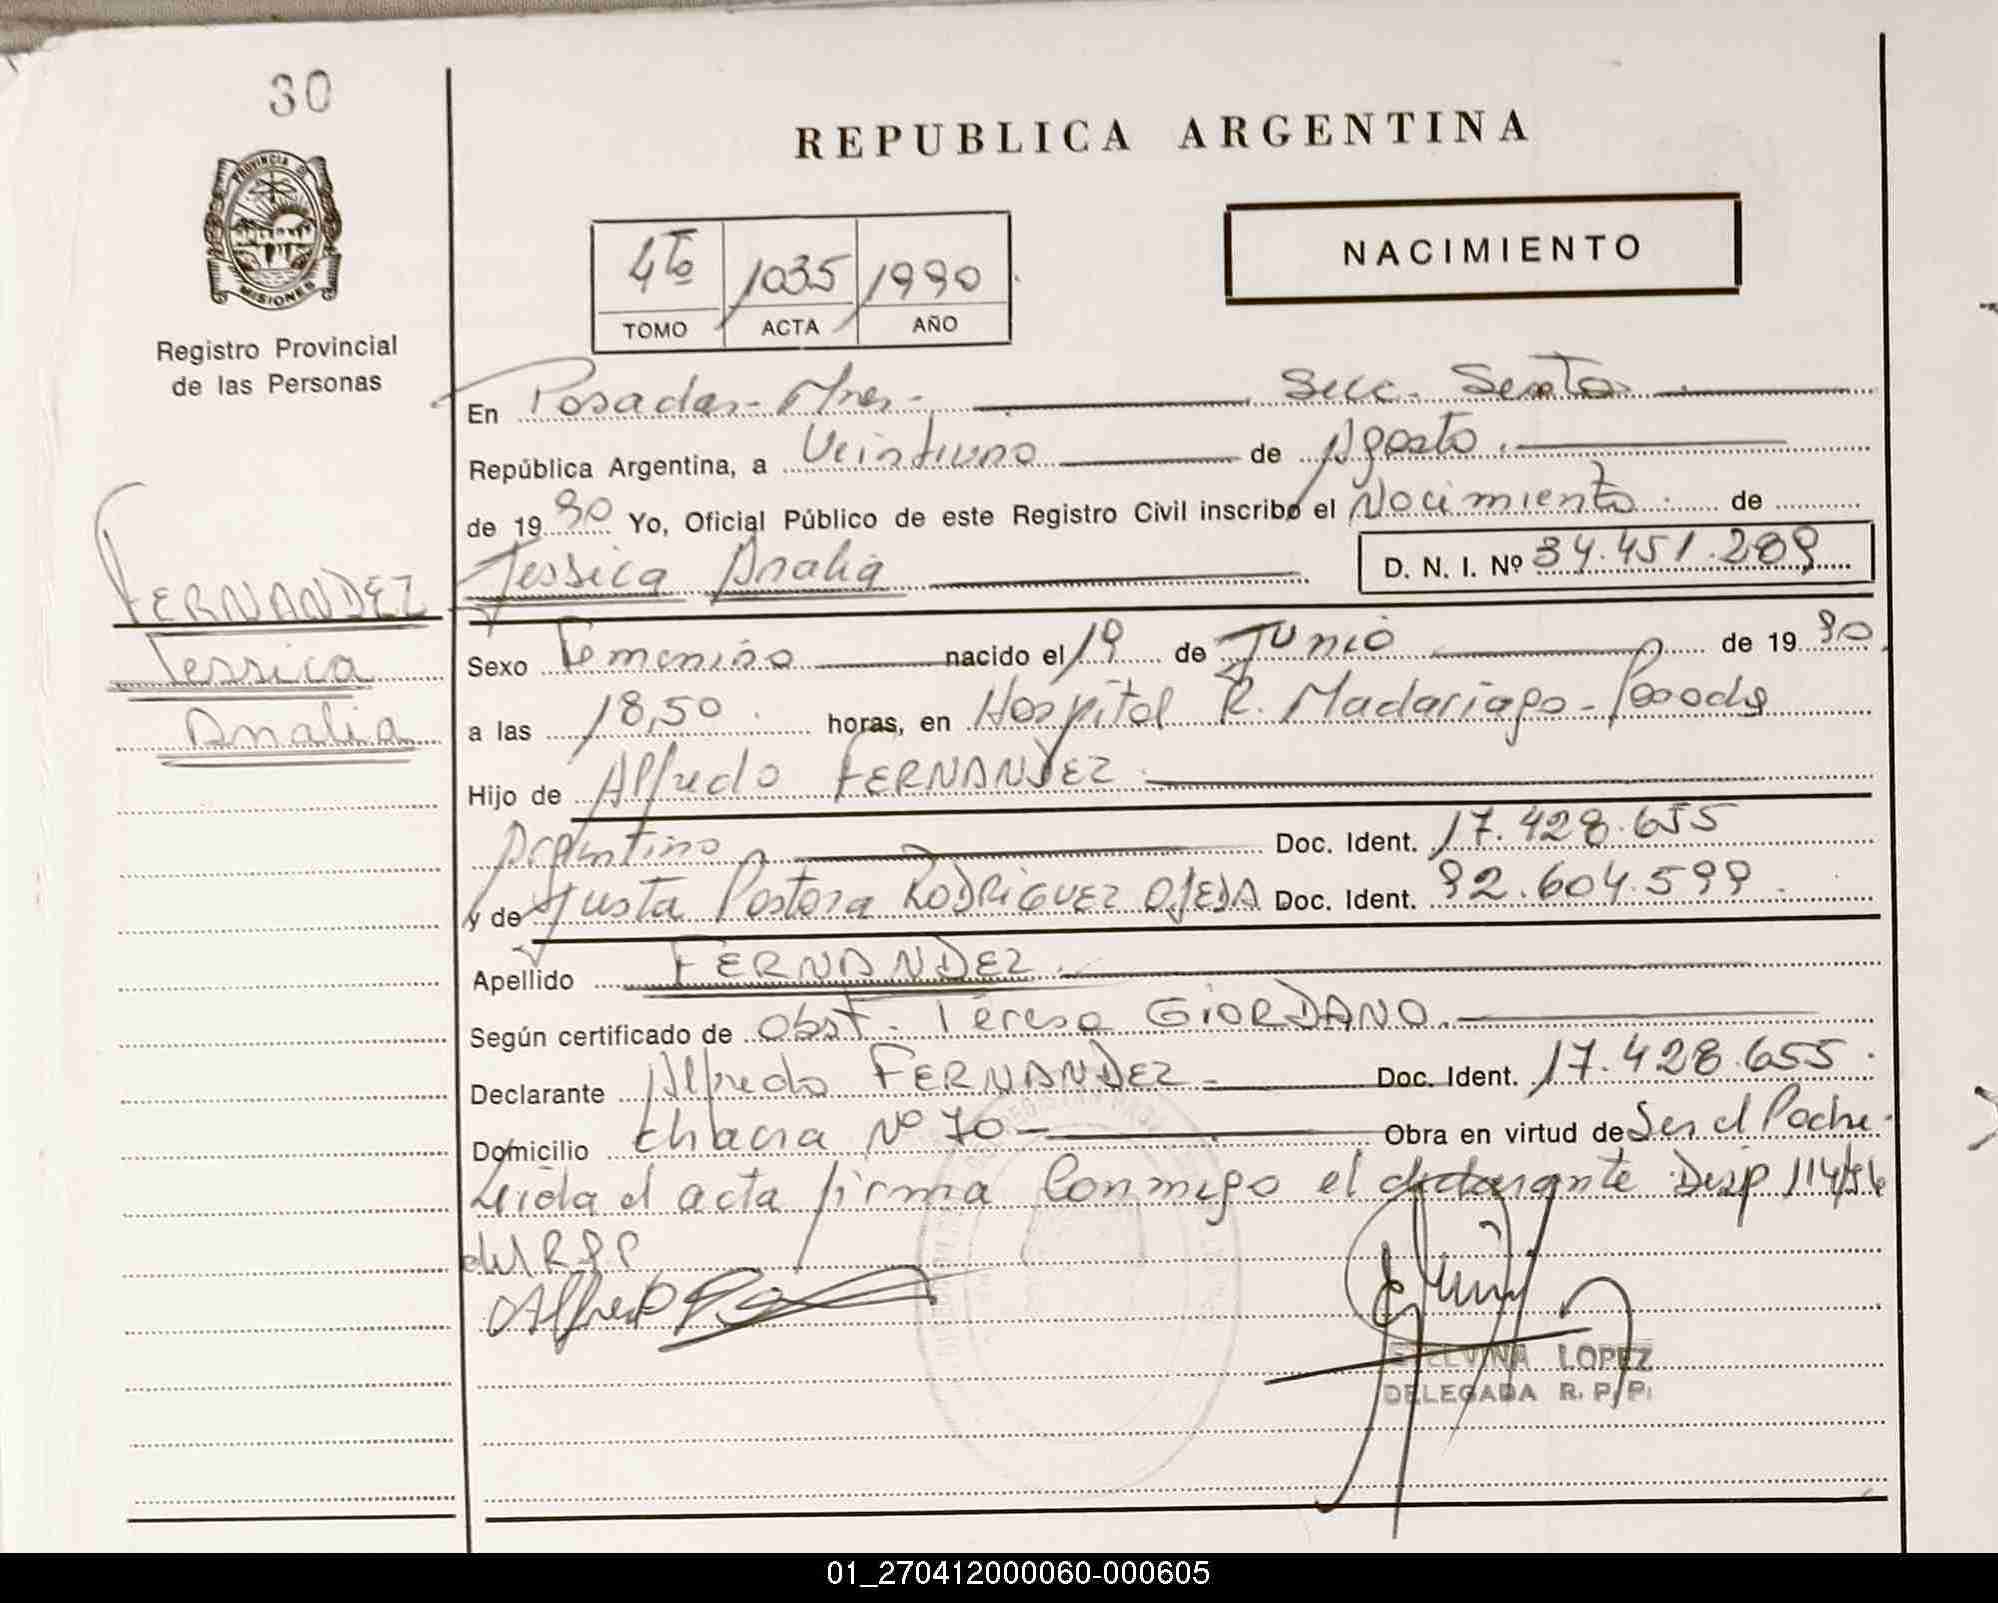 30
PROVINCIA DE
MISIONES
Registro Provincial
de las Personas
FERNANDEZ
Jessica
Analia
REPUBLICA ARGENTINA
NACIMIENTO
4to 1035 1990
TOMO ACTA AÑO
En Posadas - Mnes - Secc. Sexta
República Argentina, a Veintiuno de Agosto
de 1990 Yo, Oficial Público de este Registro Civil inscribo el Nacimiento de
Jessica Analia D. N. I. Nº 34.451.289
Sexo Femenino nacido el 19 de Junio de 1990
a las 18,50 horas, en Hospital R. Madariaga - Posadas
Hijo de Alfredo FERNANDEZ
Argentino Doc. Ident. 17.428.655
y de Justa Pastora RODRIGUEZ OJEDA Doc. Ident. 92.604.599
Apellido FERNANDEZ
Según certificado de Obst. Teresa GIORDANO.
Declarante Alfredo FERNANDEZ Doc. Ident. 17.428.655
Domicilio Chacra Nº 70 Obra en virtud de Ser el Padre
Leida el acta firma Conmigo el declarante Disp 114/86
del R P P
Alfredo
ETELVINA LOPEZ
DELEGADA R. P. P.
01_270412000060-000605